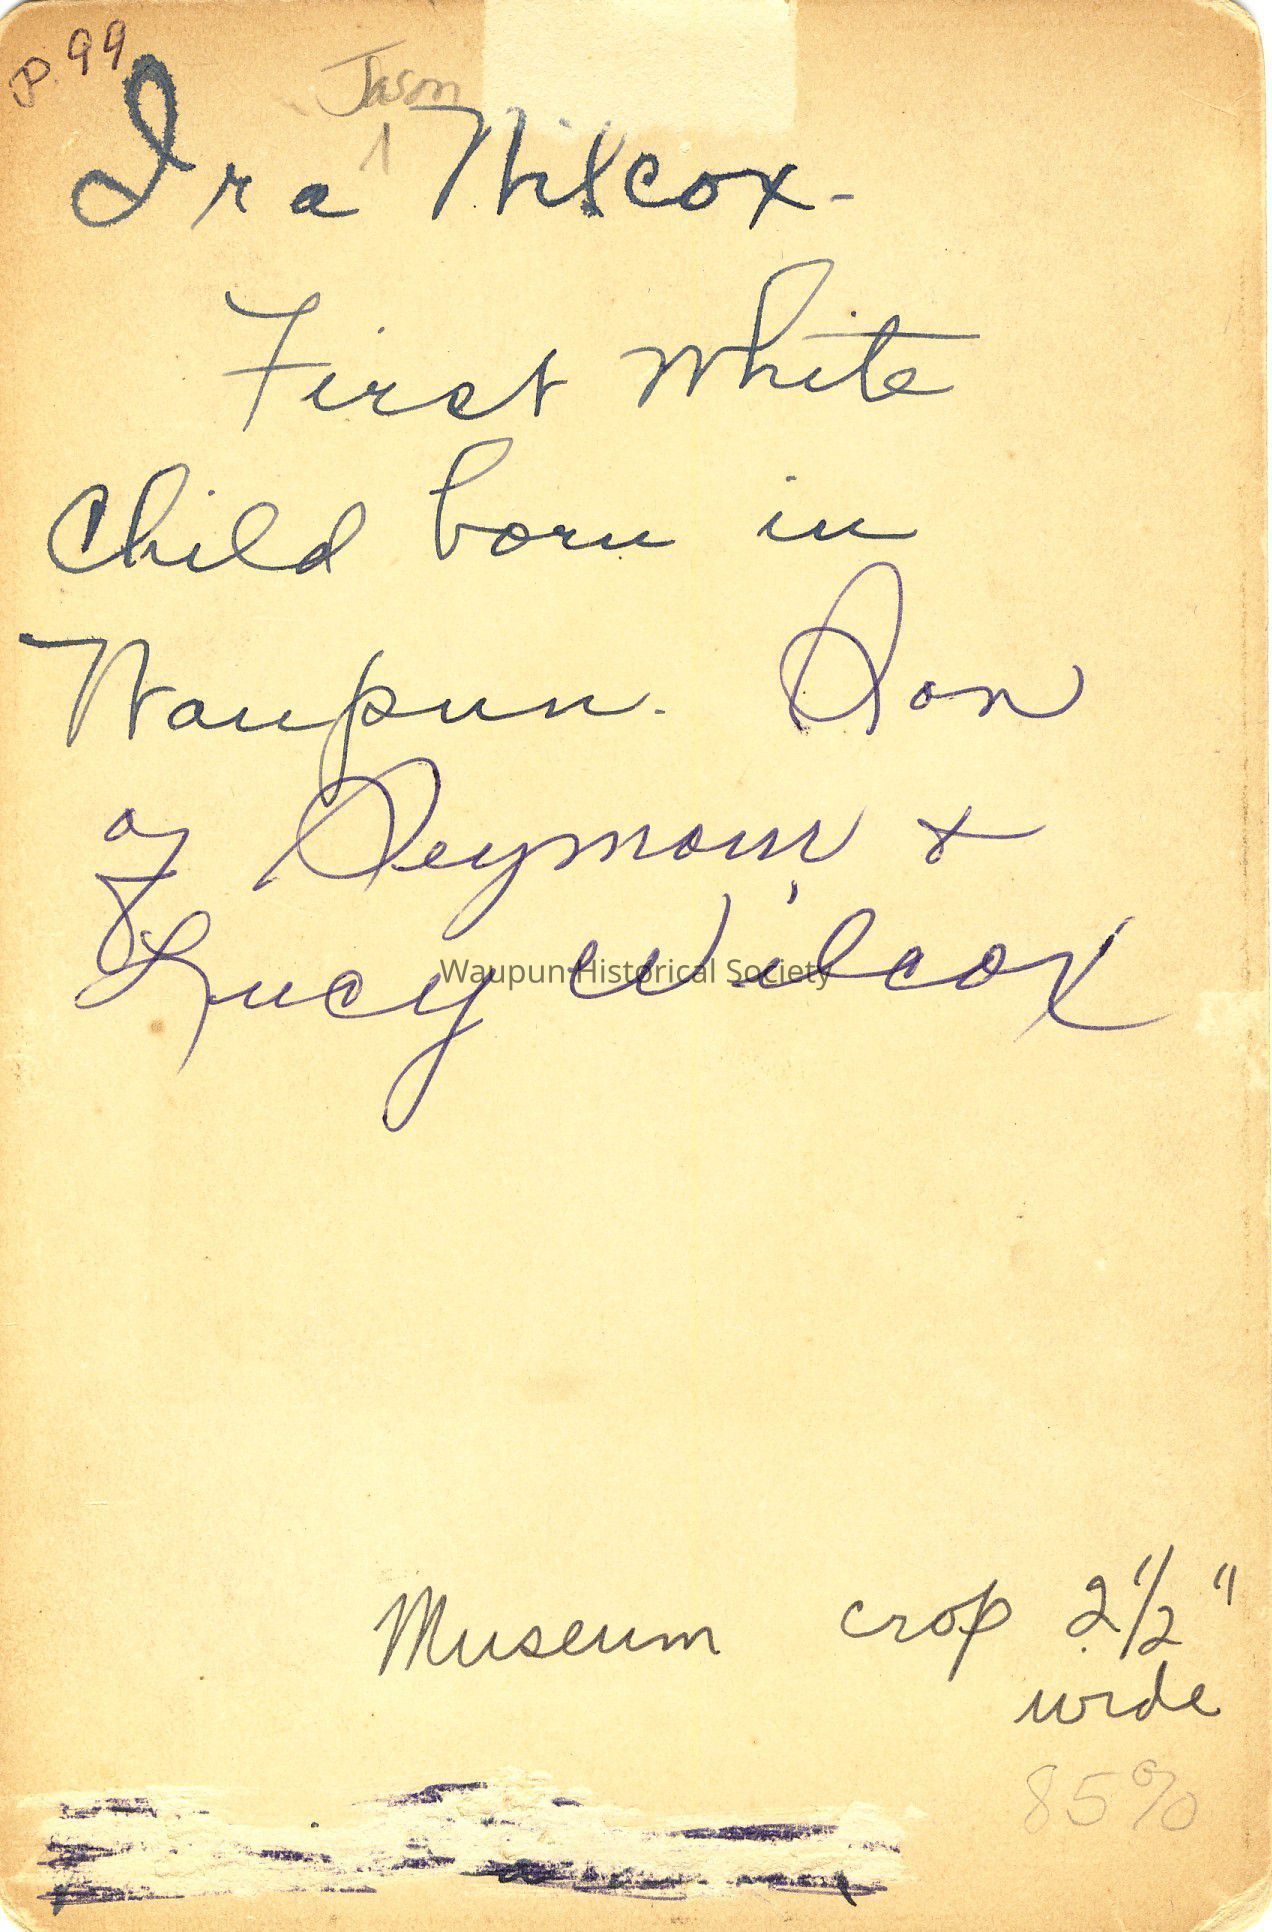 P. 99
Jason
Ira ^ Wilcox-
First White
Child born in
Waupun. Son
of Seymour &
Lucy Wilcox
Waupun Historical Society
Museum crop 2 1/2"
wide
85%